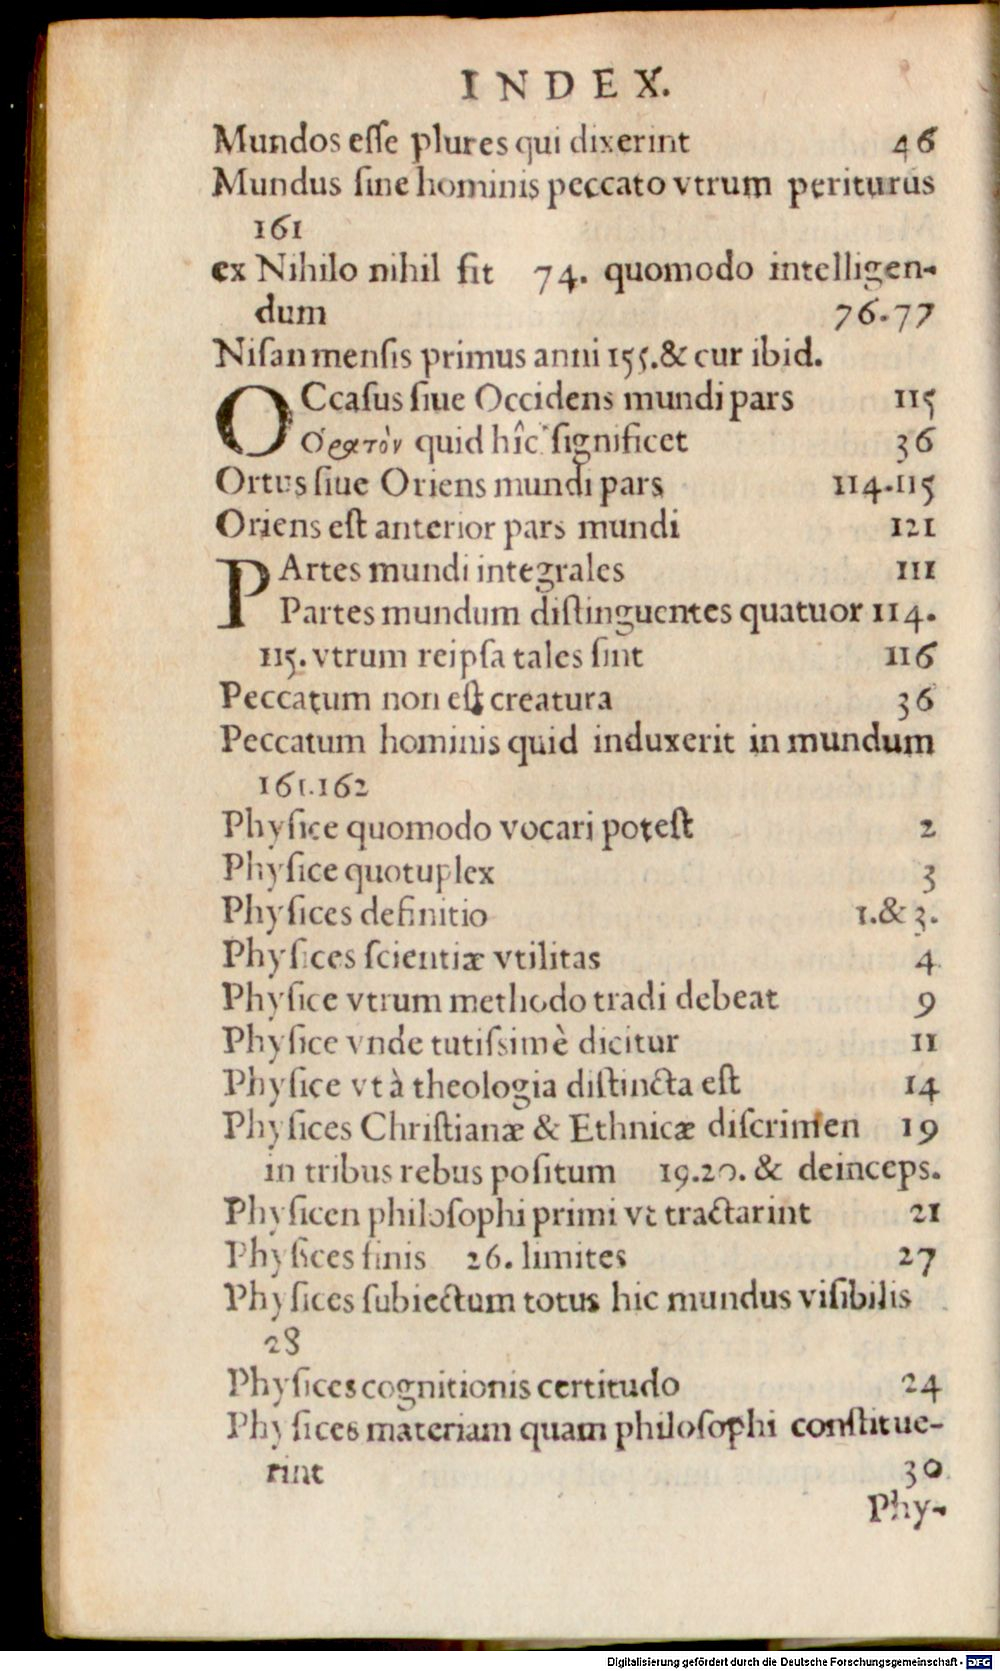 INDEX.
Mundos eſſe plures qui dixerint 46
Mundus ſine hominis peccato vtrum periturus
161
ex Nihilo nihil fit 74. quomodo intelligen-
dum 76.77
Niſan menſis primus anni 155.& cur ibid.
OCcaſus ſiue Occidens mundi pars 115
Ὁρατὸν quid hîc ſignificet 36
Ortus ſiue Oriens mundi pars 114.115
Oriens eſt anterior pars mundi 121
PArtes mundi integrales 111
Partes mundum diſtinguentes quatuor 114.
115. vtrum reipſa tales ſint 116
Peccatum non eſt creatura 36
Peccatum hominis quid induxerit in mundum
161.162
Phyſice quomodo vocari poteſt 2
Phyſice quotuplex 3
Phyſices definitio 1.& 3.
Phyſices ſcientiæ vtilitas 4
Phyſice vtrum methodo tradi debeat 9
Phyſice vnde tutiſsimè dicitur 11
Phyſice vt à theologia diſtincta eſt 14
Phyſices Chriſtianæ & Ethnicæ diſcrimen 19
in tribus rebus poſitum 19.20. & deinceps.
Phyſicen philoſophi primi vt tractarint 21
Phyſices finis 26. limites 27
Phyſices ſubiectum totus hic mundus viſibilis
28
Phyſices cognitionis certitudo 24
Phyſices materiam quam philoſophi conſtitue-
rint 30
Phy-
Digitalisierung gefördert durch die Deutsche Forschungsgemeinschaft - DFG